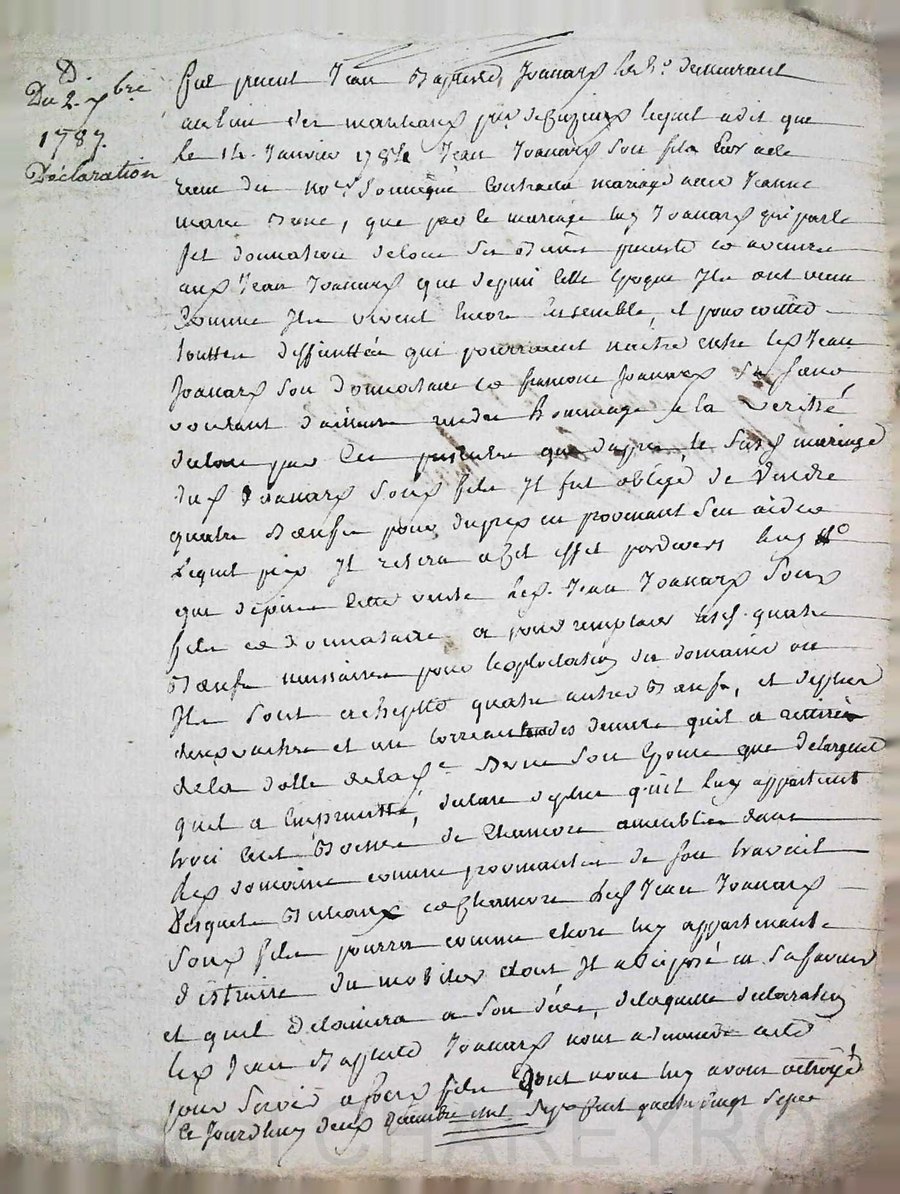 D.
Du 2. xbre
1787.
Déclaration
Fut present Jean Baptiste Joanard demeurant
au lieu des marteaux lequel a dit que
le 14. Janvier Jean Joanard son fils
contracta mariage avec Jeanne
marie, que par le mariage luy Joanard qui parle
fit donnation de tous ses Biens presents et avenirs
aud Jean Joanard que depuis cette Epoque Ils ont vecu
Comme Ils vivent Encore Ensemble, et pour eviter
touttes difficultés qui pourroient naitre entre led Jean
Joanard son donnataire et francois Joanard
voulant d'ailleurs rendre hommage a la verité
declare par ces presentes que d'apres le susd mariage
dud Joanard Sond fils Il fut obligé de Vendre
quatre Bœufs pour du prix en provenant s'en aider
Lequel prix Il retira a cet effet
que depuis cette vente led. Jean Joanard Sond
fils et donnataire a pour remplacer lesd. quatre
Bœufs necessaires pour l'exploitation du domaine ou
Ils sont achepté quatre autres Bœufs, et de plus
deux vaches et un des deniers qu'il a retirés
de la dotte de la de. son Epouse que de l'argent
quil a Emprunté, declare de plus qu'il luy appartient
trois cent de Chanvre dans
led domaine comme provenant de son travail
Lesquels Bestiaux et Chanvre led Jean Joanard
Sond fils pourra comme chose luy appartenante
distraire du mobilier dont Il a disposé en sa faveur
et quil delaissera a son décès, de laquelle declaration
led Jean Baptiste Joanard nous a demandé acte
pour servir a sond fils Dont nous luy avons octroyé
Ce Jourdhuy deux Decembre mil Sept cent quatre vingt Sept
Pascal CHAREYRON